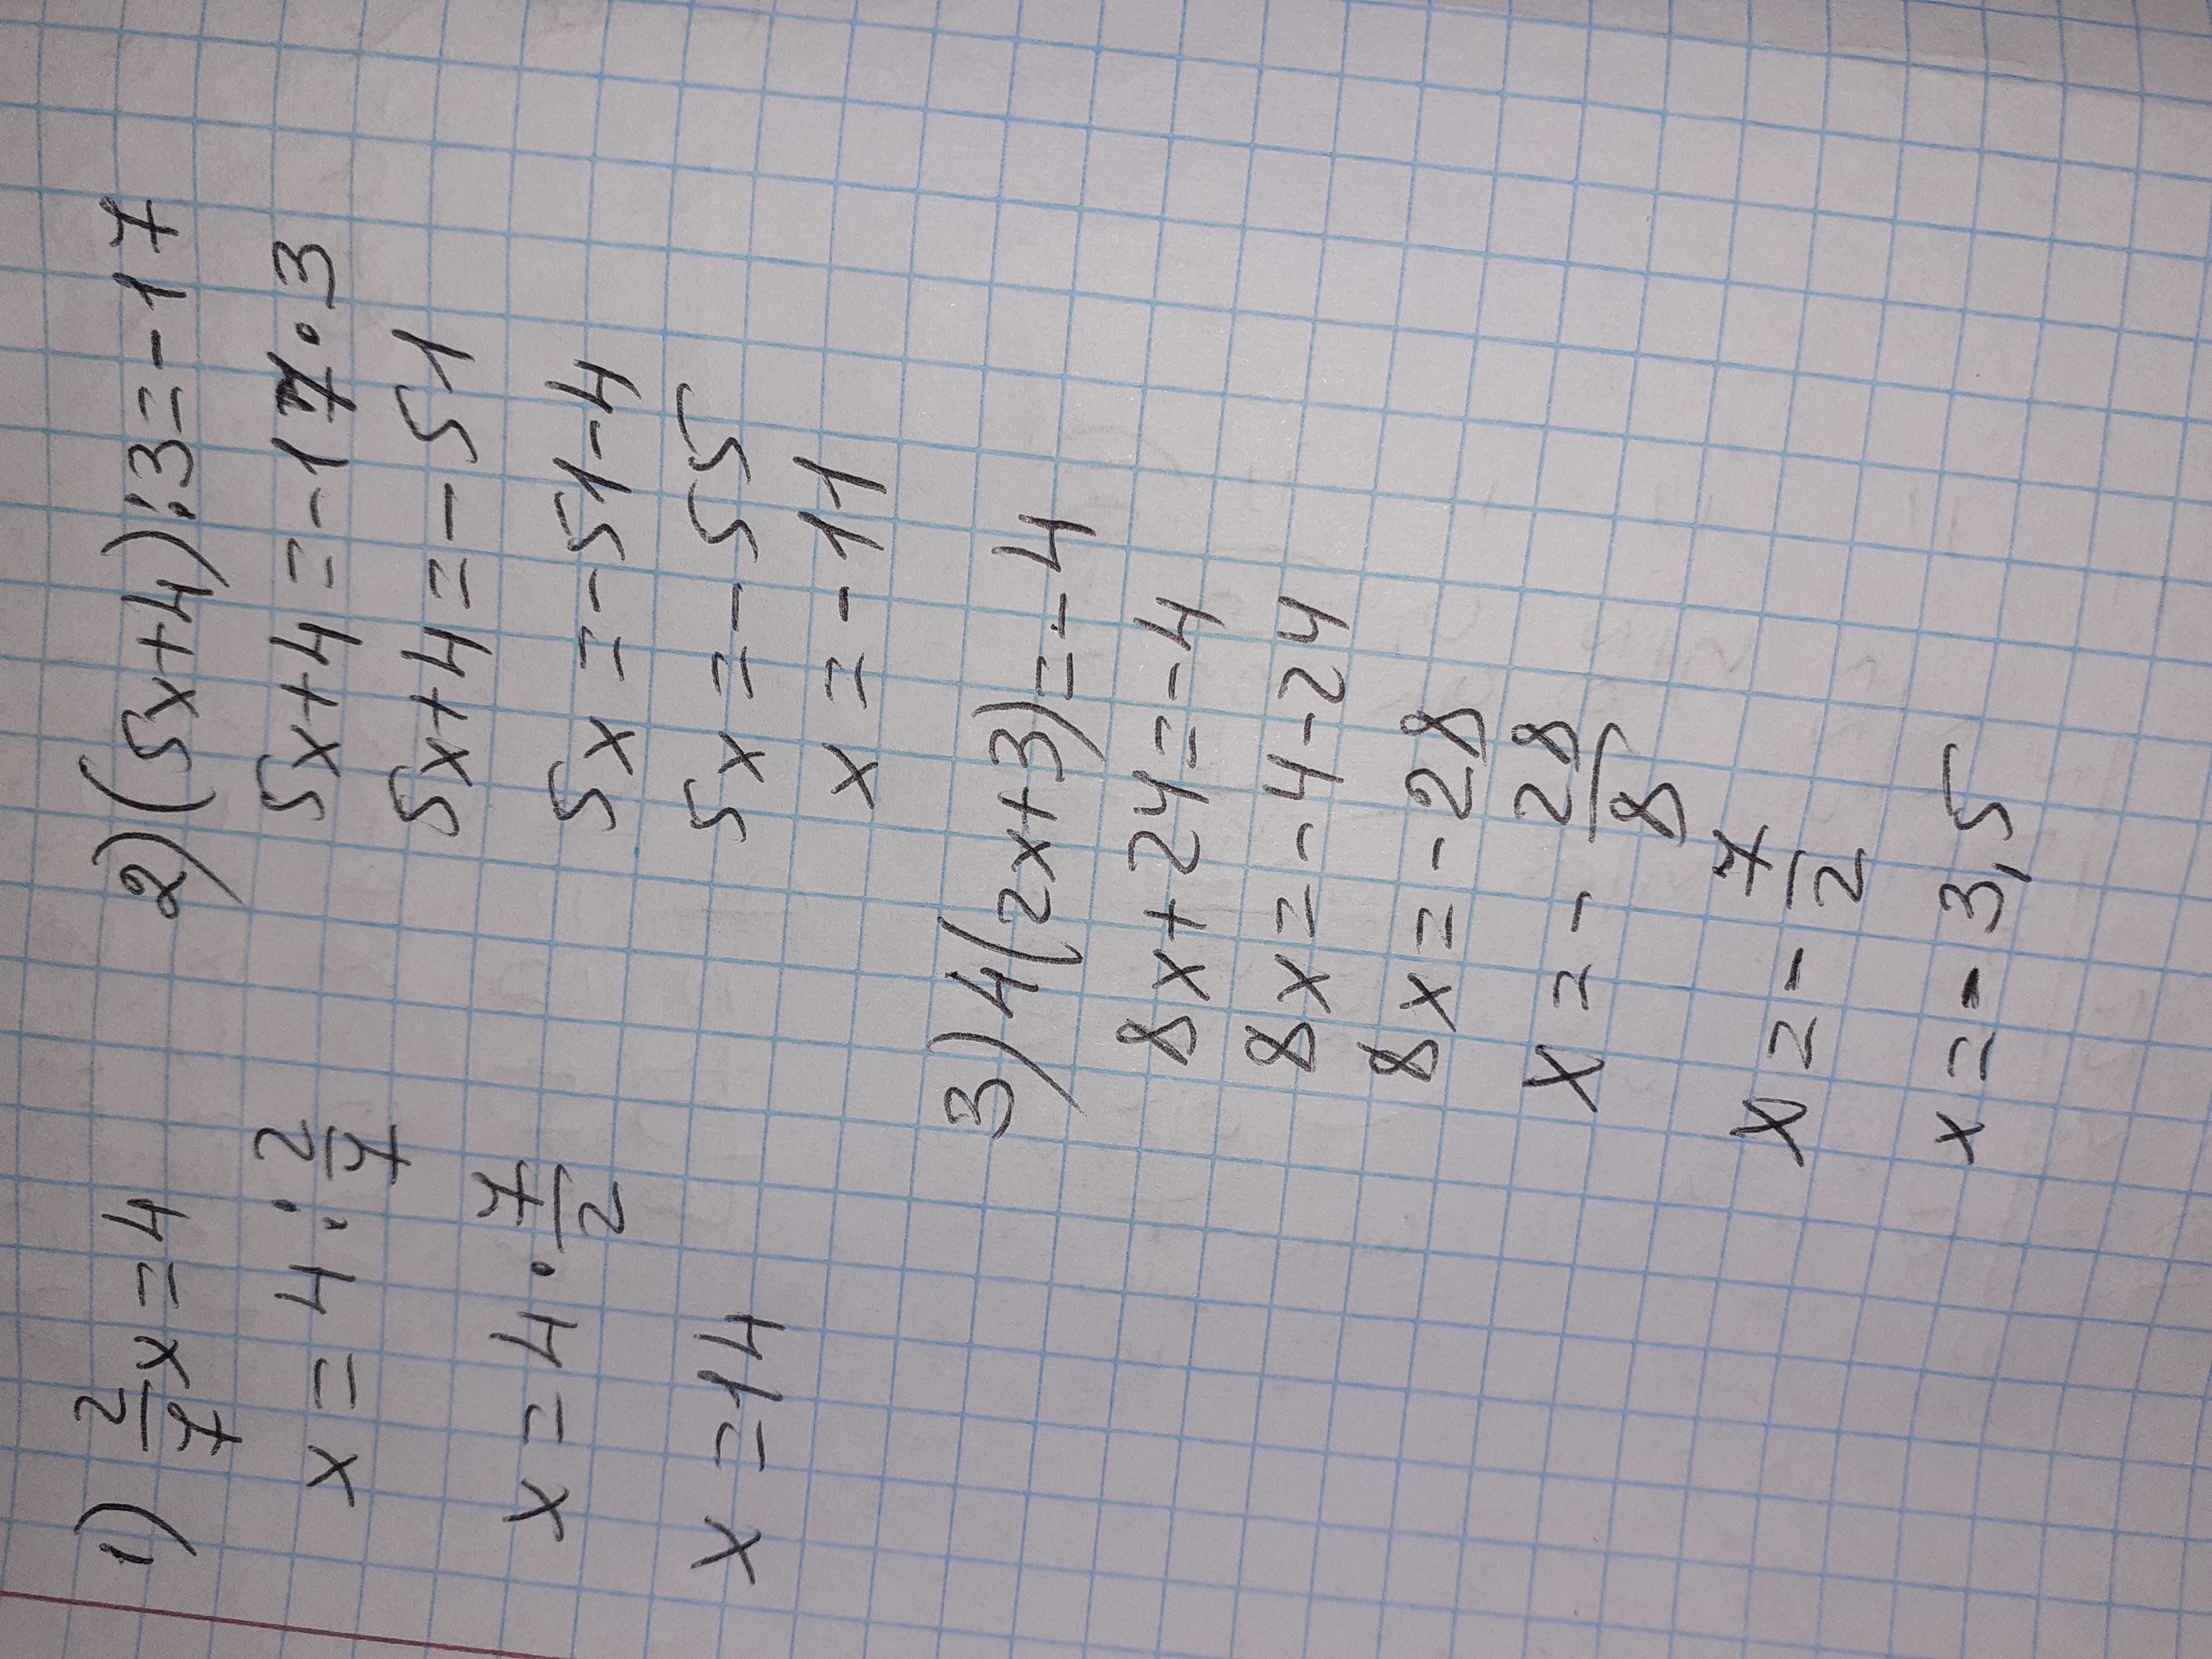 1) 2/7 x = 4
x = 4 : 2/7
x = 4 · 7/2
x = 14
2) (5x+4):3=-17
5x+4=-17·3
5x+4=-51
5x=-51-4
5x=-55
x=-11
3) 4(2x+3)=-4
8x+24=-4
8x=-4-24
8x=-28
x=-28/8
x=-7/2
x=-3,5